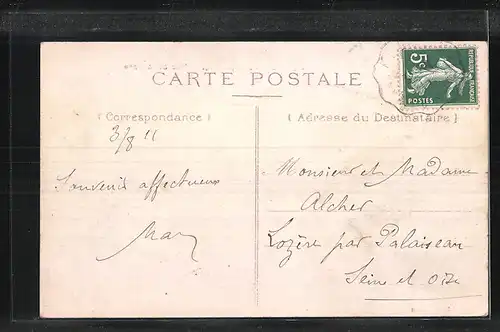 CARTE POSTALE
5c
REPUBLIQUE FRANÇAISE
POSTES
(Correspondance)
(Adresse du Destinataire)
3/8 11
Souvenir affectueux
Monsieur et Madame
Alcher
Lozère par Palaiseau
Seine et Oise